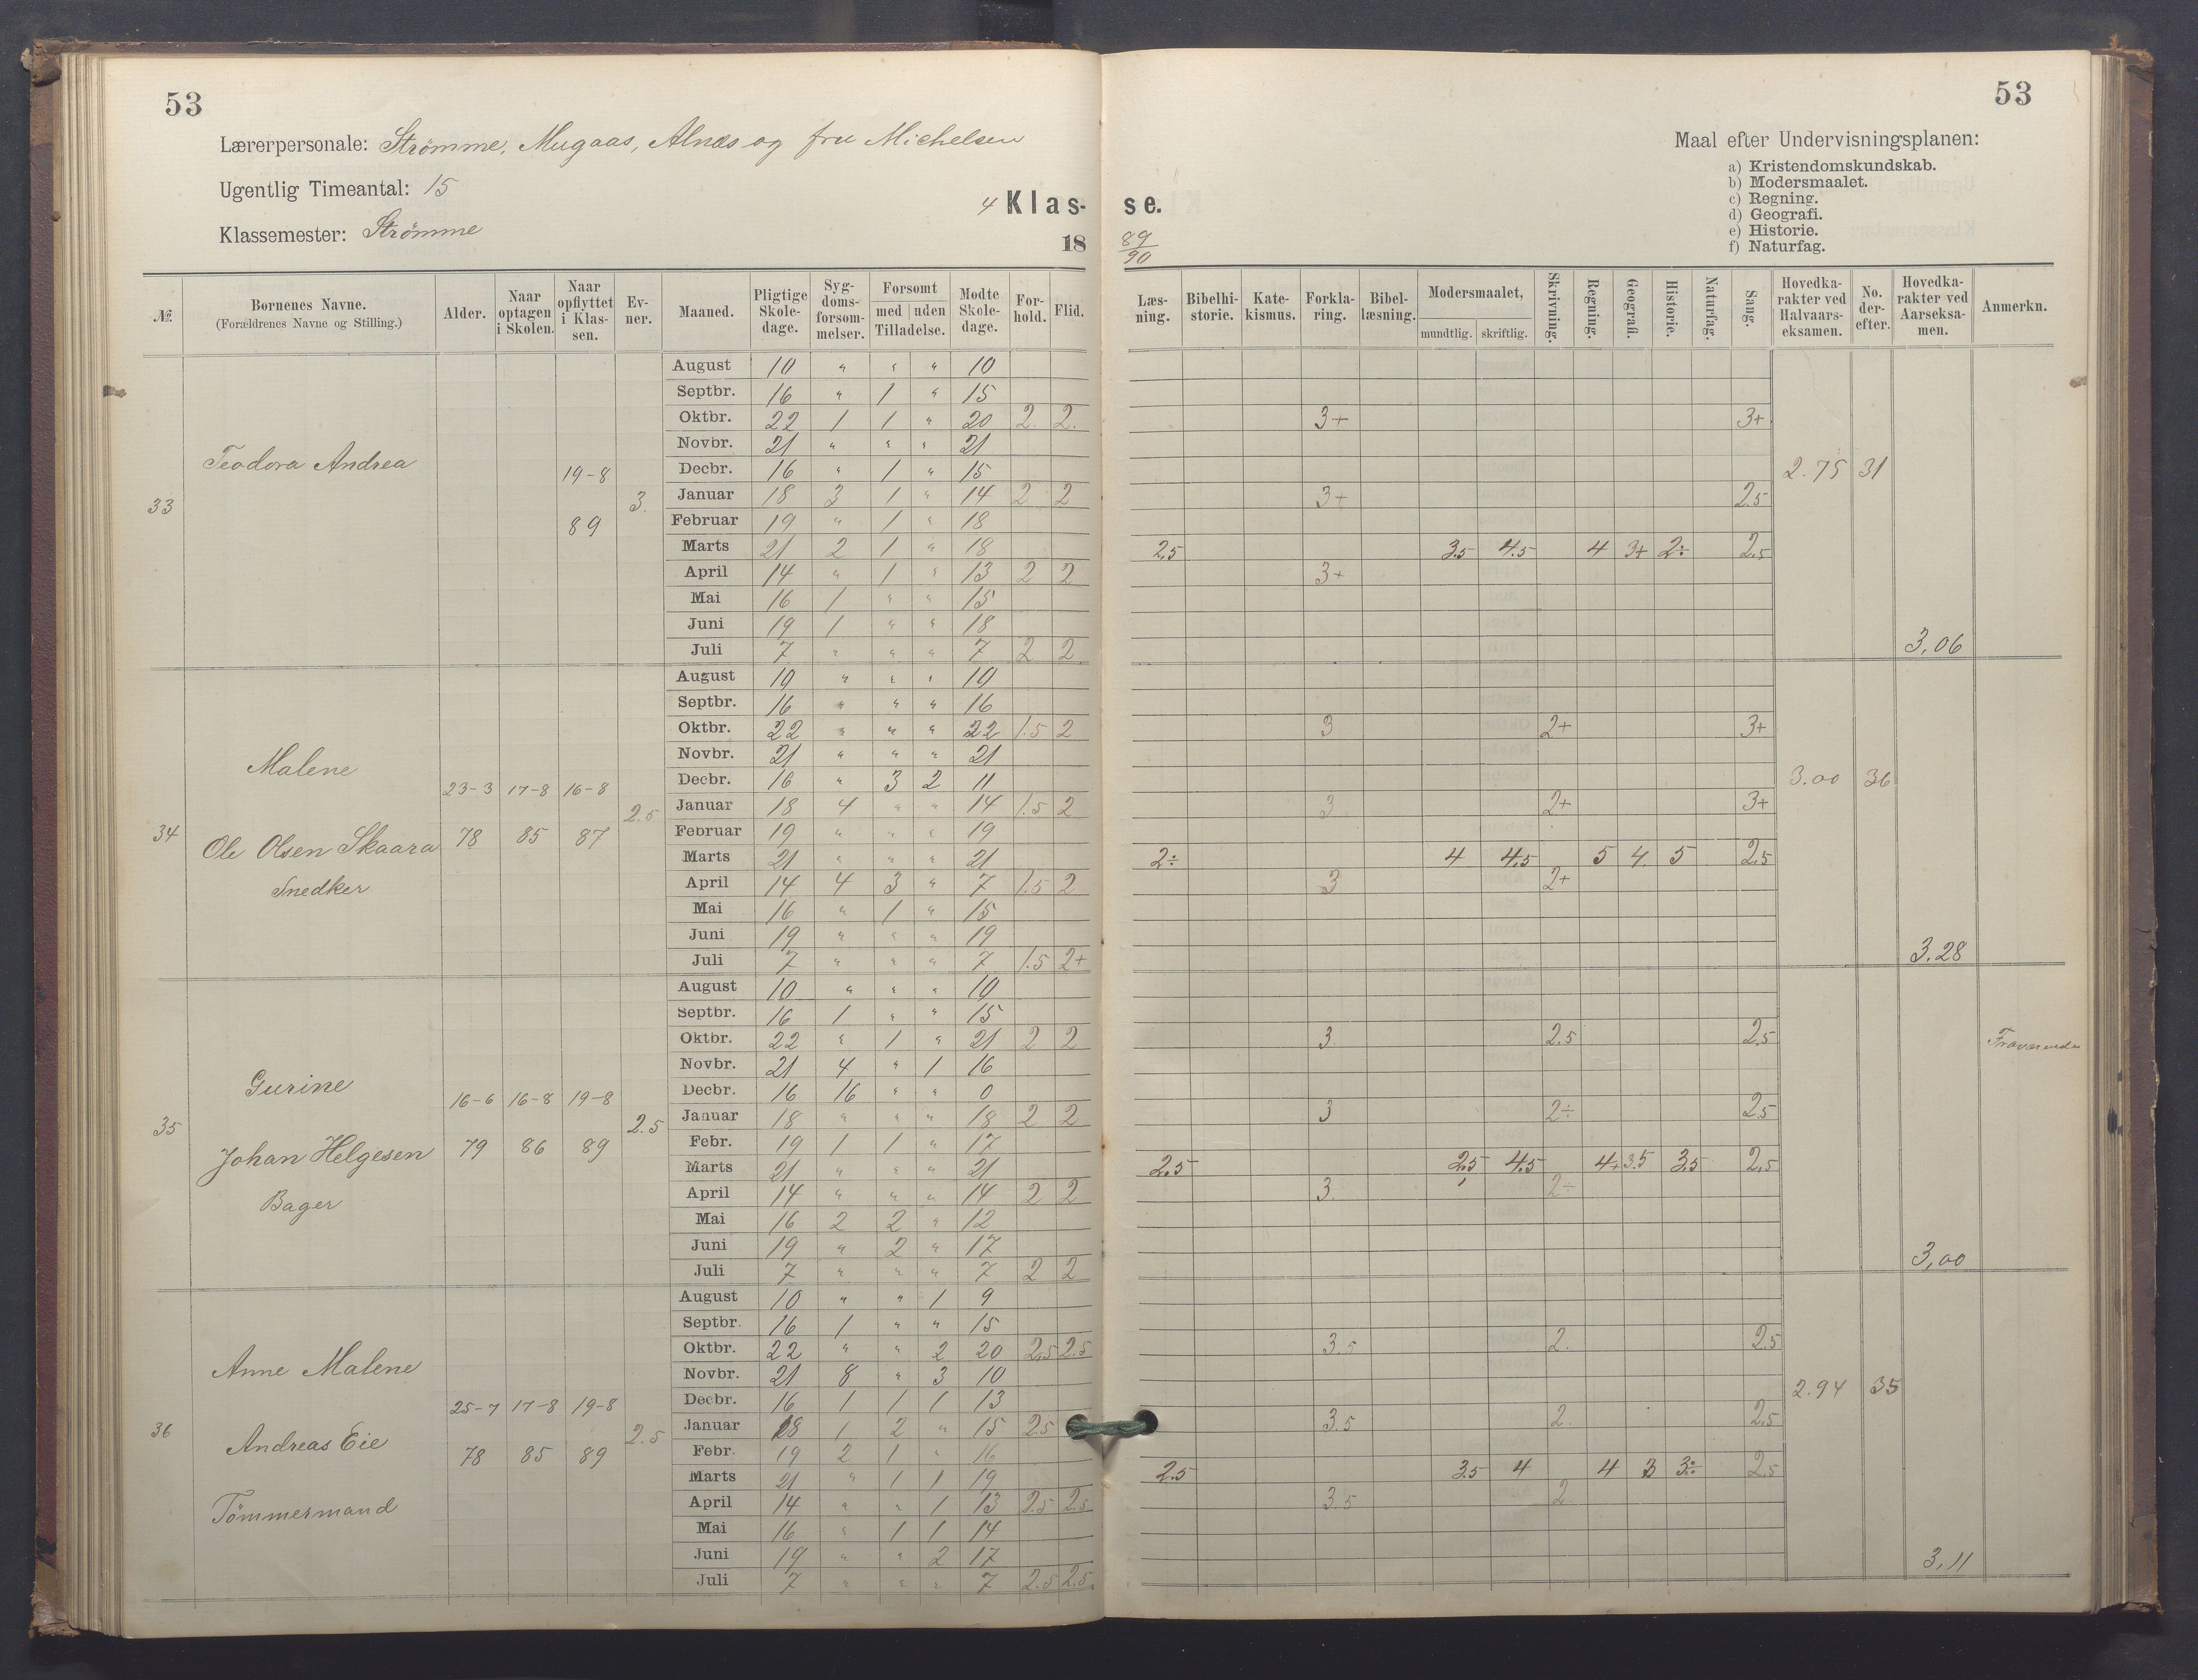 53
Lærerpersonale: Strømme, Mugaas, Alnæs og fru Michelsen
Ugentlig Timeantal: 15
Klassemester: Strømme
4 Klas-
18
№. Børnenes Navne. (Forældrenes Navne og Stilling.) Alder. Naar optagen i Skolen. Naar opflyttet i Klassen. Evner. Maaned. Pligtige Skoledage. Sygdomsforsommelser. Forsømt med uden Tilladelse. Mødte Skoledage. Forhold. Flid.
33 Teodora Andrea 19-8 89 3.
August 10 " " " 10
Septbr. 16 " 1 " 15
Oktbr. 22 1 1 " 20 2. 2.
Novbr. 21 " " " 21
Decbr. 16 " 1 " 15
Januar 18 3 1 " 14 2 2
Februar 19 " 1 " 18
Marts 21 2 1 " 18
April 14 " 1 " 13 2 2
Mai 16 1 " " 15
Juni 19 1 " " 18
Juli 7 " " " 7 2 2
34 Malene
Ole Olsen Skaara
Snedker
23-3 78 17-8 85 16-8 87 2.5
August 10 " " " 10
Septbr. 16 " " " 16
Oktbr. 22 " " " 22 1.5 2
Novbr. 21 " " " 21
Decbr. 16 " 3 2 11
Januar 18 4 " " 14 1.5 2
Februar 19 " " " 19
Marts 21 " " " 21
April 14 4 3 " 7 1.5 2
Mai 16 " 1 " 15
Juni 19 " " " 19
Juli 7 " " " 7 1.5 2+
35 Gurine
Johan Helgesen
Bager
16-6 79 16-8 86 19-8 89 2.5
August 10 " " " 10
Septbr. 16 1 " " 15
Oktbr. 22 " 1 " 21 2 2
Novbr. 21 4 " 1 16
Decbr. 16 16 " " 0
Januar 18 " " " 18 2 2
Febr. 19 1 1 " 17
Marts 21 " " " 21
April 14 " " " 14 2 2
Mai 16 2 2 " 12
Juni 19 " 2 " 17
Juli 7 " " " 7 2 2
36 Anne Malene
Andreas Eie
Tömmermand
25-7 78 17-8 85 19-8 89 2.5
August 10 " " 1 9
Septbr. 16 1 " " 15
Oktbr. 22 " " 2 20 2.5 2.5
Novbr. 21 8 " 3 10
Decbr. 16 1 1 1 13
Januar 18 1 2 " 15 2.5
Febr. 19 2 1 " 16
Marts 21 " 1 1 19
April 14 " " 1 13 2.5 2.5
Mai 16 " 1 1 14
Juni 19 " " 2 17
Juli 7 " " " 7 2.5 2.5
53
Maal efter Undervisningsplanen:
a) Kristendomskundskab.
b) Modersmaalet.
c) Regning.
d) Geografi.
e) Historie.
f) Naturfag.
se.
89
90
Læsning. Bibelhistorie. Katekismus. Forklaring. Bibellæsning. Modersmaalet, mundtlig. skriftlig. Skrivning. Regning. Geografi. Historie. Naturfag. Sang. Hovedkarakter ved Halvaarseksamen. No. derefter. Hovedkarakter ved Aarseksamen. Anmerkn.
3+ 3+
2.75 31
3+ 2.5
2.5 3.5 4.5 4 3+ 2÷ 2.5
3+
3,06
3 2+ 3+
3.00 36
3 2+ 3+
2÷ 4 4.5 5 4. 5 2.5
3 2+
3.28
3. 2.5 2.5
3 2÷ 2.5
2.5 2.5 4.5 4+ 3.5 3.5 2.5
3. 2÷
3,00
3.5 2. 2.5
2.94 35
3.5 2. 2.5
2.5 3.5 4 4 3 3÷ 2.5
3.5 2
3,11